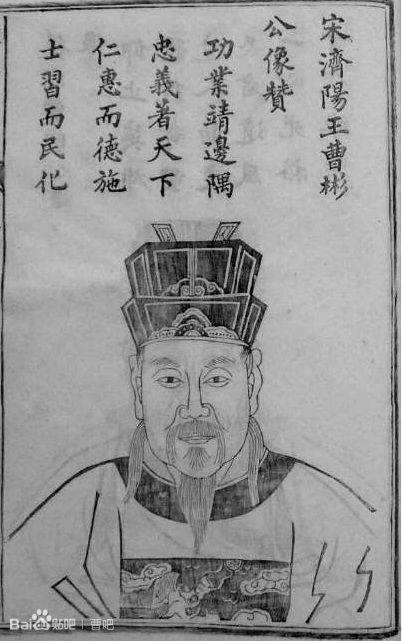 宋濟陽王曹彬
公像贊
功業靖邊隅
忠義著天下
仁惠而德施
士習而民化
Bai貼吧 | 曹吧